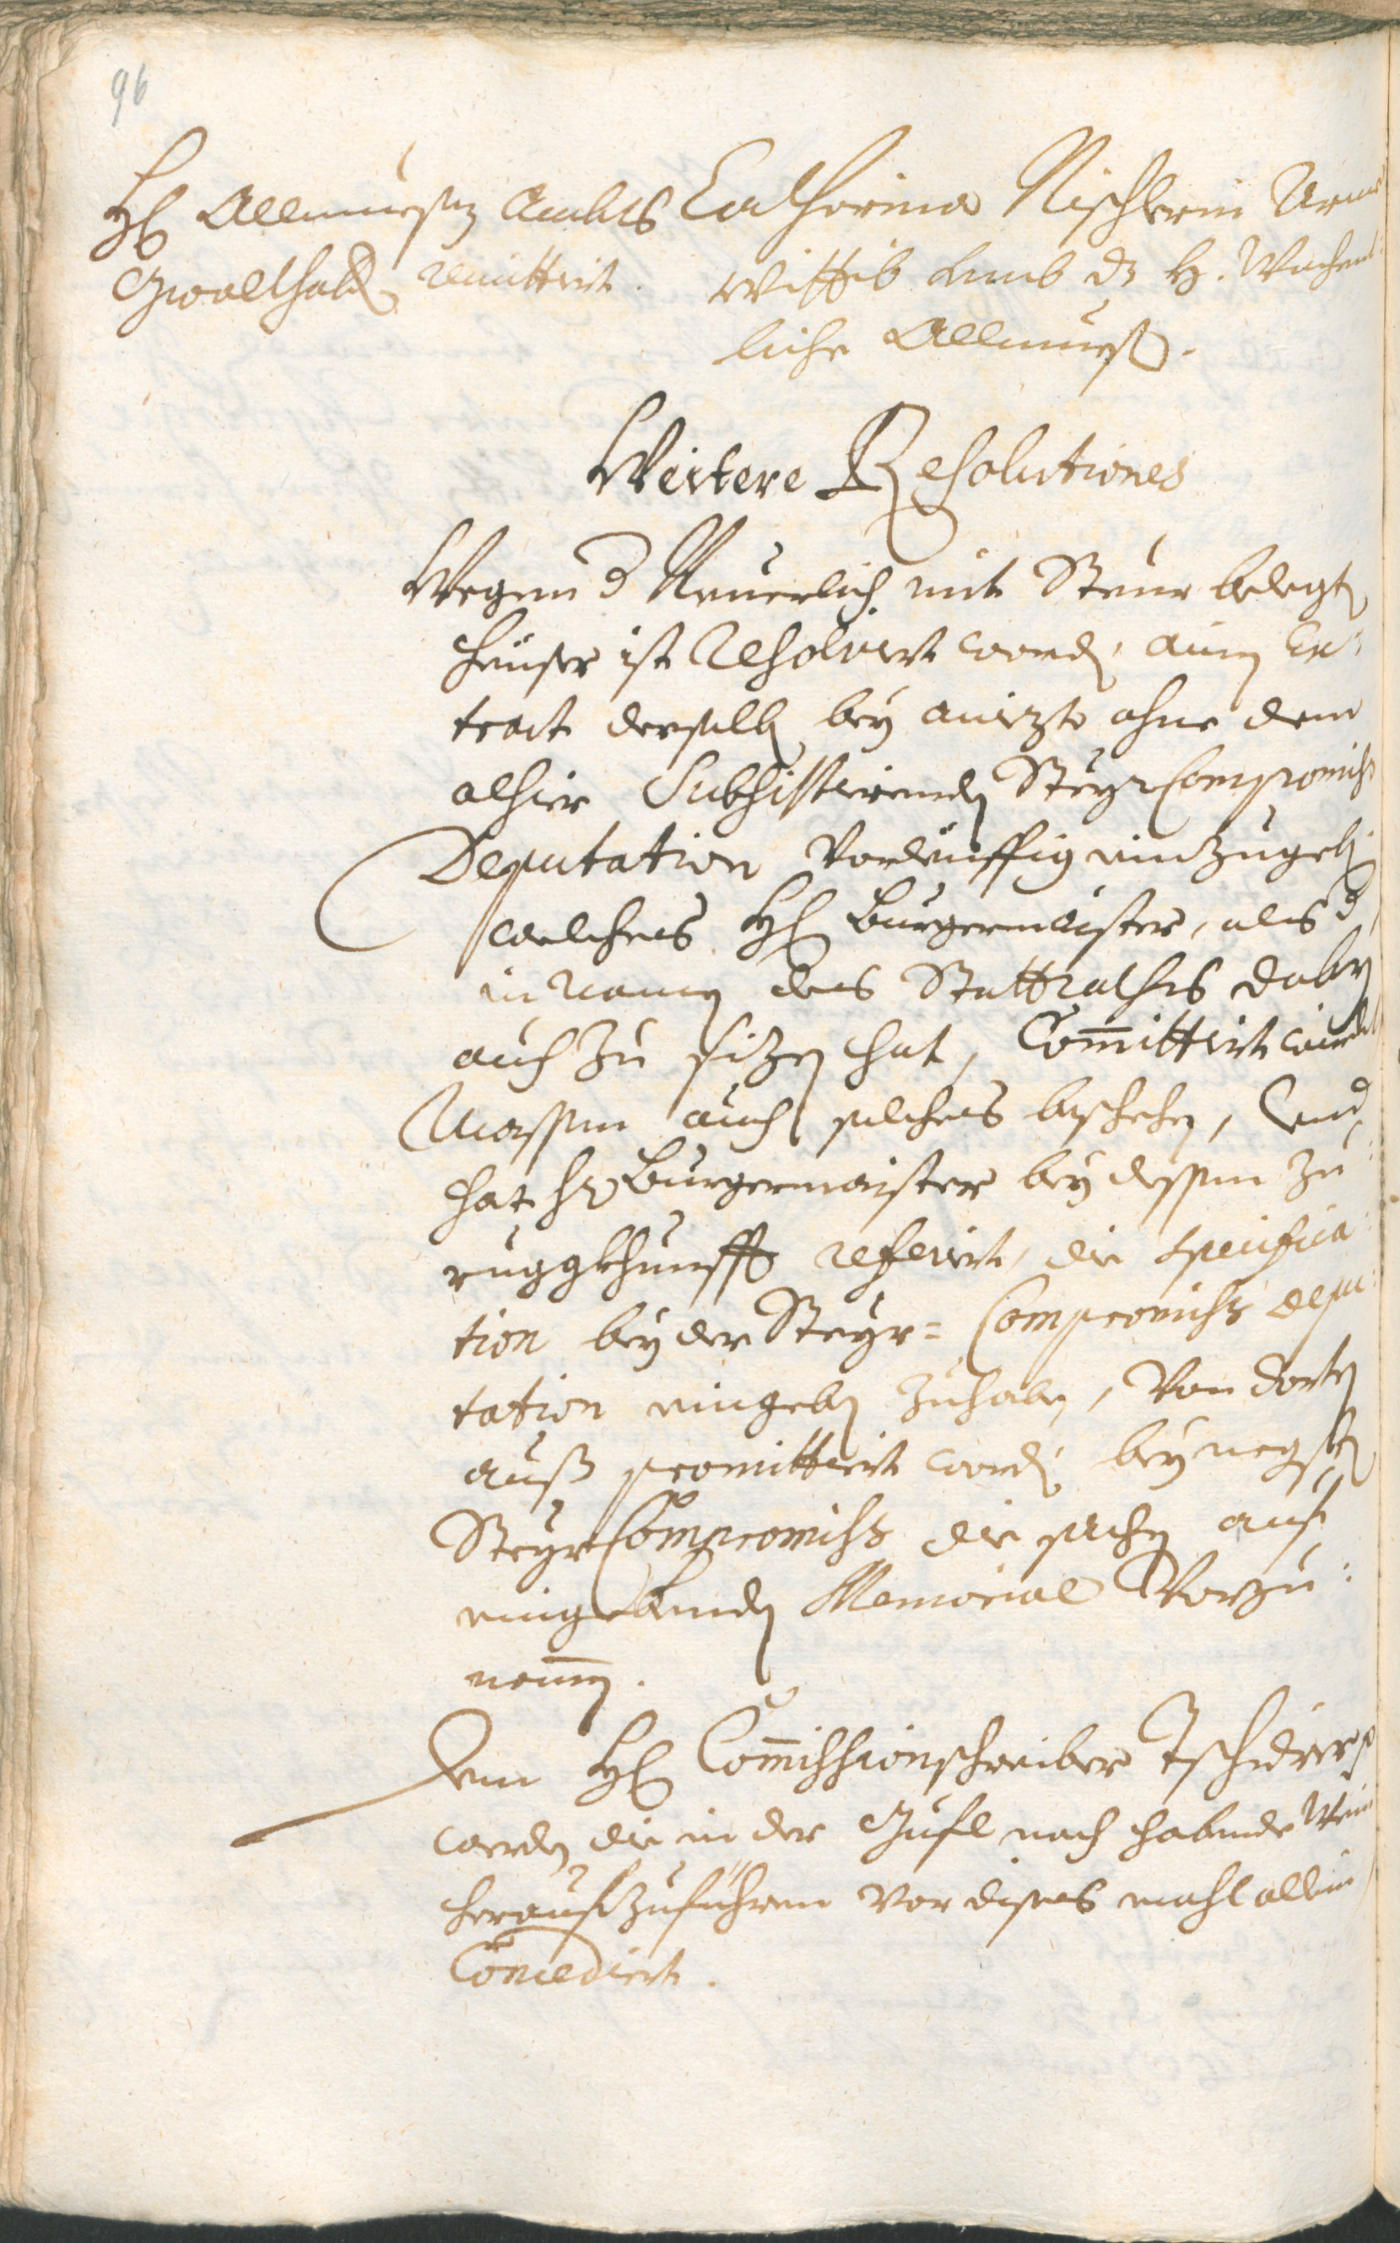 96
H: Allmuesen Ambts
Gwalthab: remittirt.
Catharina Nischlerin Arme
Wittib umb dz H: Wochent
liche Allmueß.
Weitere Resolutiones
Wegen d Neuerlich mit Steur belegt
heuser ist Resolvirt word, ainen Ex:
tract derselb bey aniezt ohne dem
alhier Subsistierenden Steyr Compromiss
Deputation vorleuffig einzugeben
welches H: Burgermaister, als d
in namen des Stattrathes dabey
auch zu sizen hat, Committirt wordn
Massen auch solches beschehen, und
hat H: Burgermaister bey dessen zu
ruggkhunfft referirt, die Specifica
tion bey der Steyr= Compromiss depu
tation eingeben zuhaben, von dorten
auß promittirt word, bey negsten
Steyr Compromiss die sachen auf
eingebenden Memorial vorzu:
nemen.
Dem H: Commissionschreiber Tschiderer
werden die in der Gufl noch habende Wein
herauszuführen vor dises mahl allein
Concedirt.